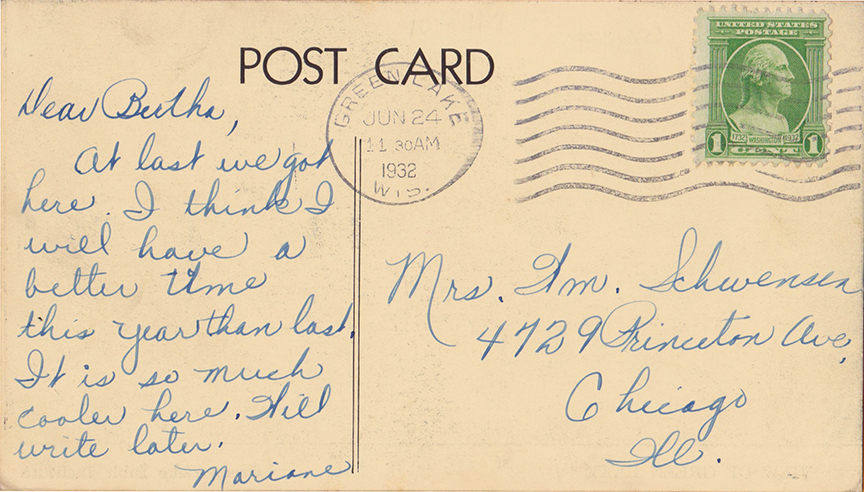 POST CARD
GREEN LAKE
JUN 24
11 30AM
1932
WIS.
UNITED STATES
POSTAGE
1732 WASHINGTON 1932
1 1
Dear Bertha,
At last we got
here. I think I
will have a
better time
this year than last.
It is so much
cooler here. Will
write later.
Mariane
Mrs. Wm. Schwensen
4729 Princeton Ave.
Chicago
Ill.